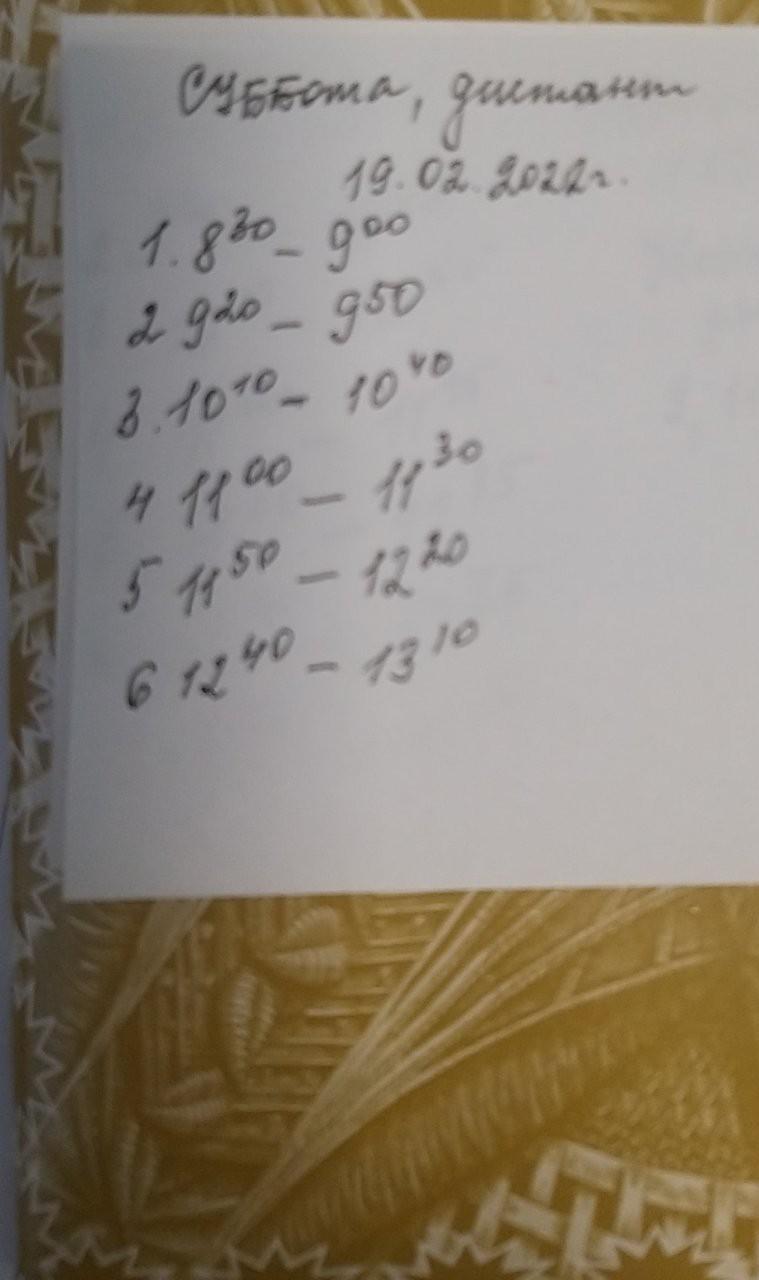 Суббота, дистант
19.02.2022г.
1. 8³⁰ – 9⁰⁰
2 9²⁰ – 9⁵⁰
3. 10¹⁰ – 10⁴⁰
4 11⁰⁰ – 11³⁰
5 11⁵⁰ – 12²⁰
6 12⁴⁰ – 13¹⁰